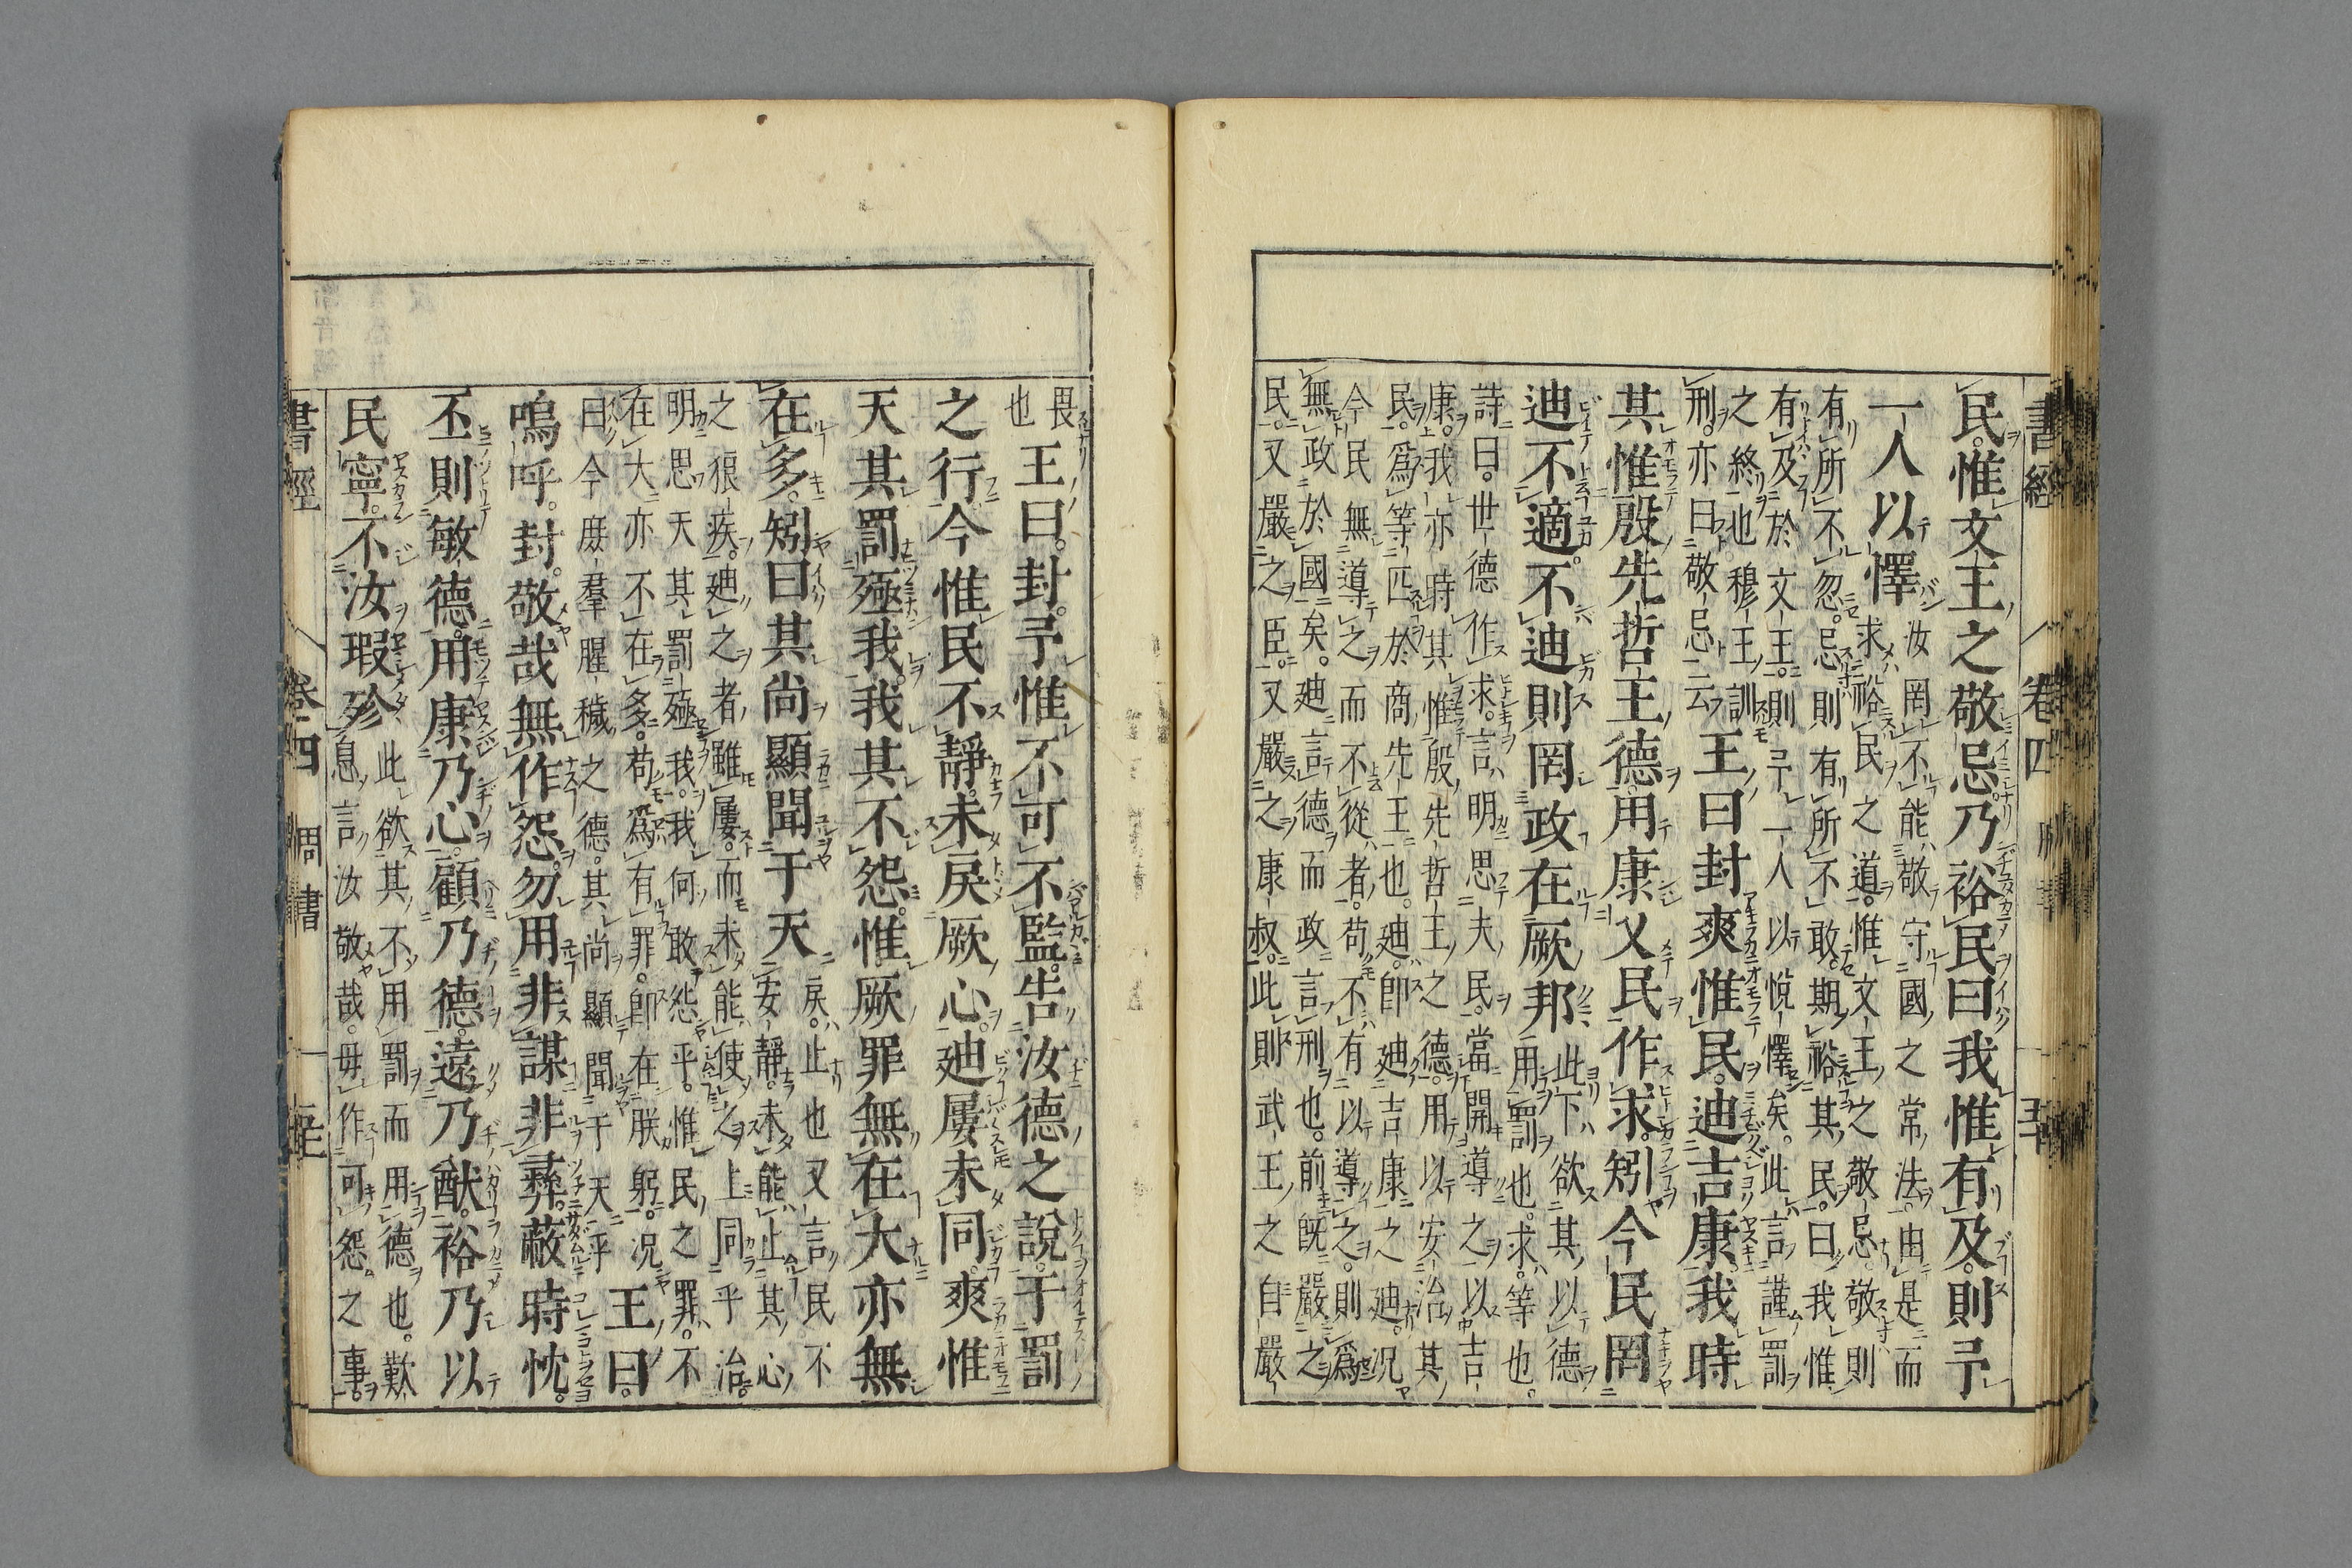 民惟文王之敬忌乃裕民曰我惟有及則予
一人以懌
汝罔不能敬守國之常法由是而
求裕民之道惟文王之敬忌敬則
有所不忽忌則有所不敢期裕其民曰我惟
有及於文王則予一人以悅懌矣此言謹罰
之終也穆王訓
刑亦曰敬忌云
王曰封爽惟民迪吉康我時
其惟殷先哲王德用康乂民作求矧今民罔
迪不適不迪則罔政在厥邦
此下欲其以德
用罰也求等也
詩曰世德作求言明思夫民當開導之以吉
康我亦時其惟殷先哲王之德用以安治其
民爲等匹於商先王也迪即迪吉康之迪況
今民無導之而不從者苟不有以導之則爲
無政於國矣迪言德而政言刑也前既嚴之
民又嚴之臣又嚴之康叔此則武王之自嚴
書經
卷四
畏
也
王曰封予惟不可不監告汝德之說于罰
之行今惟民不靜未戾厥心迪屢未同爽惟
天其罰殛我我其不怨惟厥罪無在大亦無
在多矧曰其尚顯聞于天
戾止也又言民不
安靜未能止其心
之狠疾迪之者雖屢而未能使之上同乎治
明思天其罰殛我我何敢怨乎惟民之罪不
在大亦不在多苟爲有罪即在朕躬況
曰今庶羣腥穢之德其尚顯聞于天乎
王曰
嗚呼封敬哉無作怨勿用非謀非彝蔽時忱
丕則敏德用康乃心顧乃德遠乃猷裕乃以
民寧不汝瑕殄
此欲其不用罰而用德也歎
息言汝敬哉毋作可怨之事
書經
卷四
周書